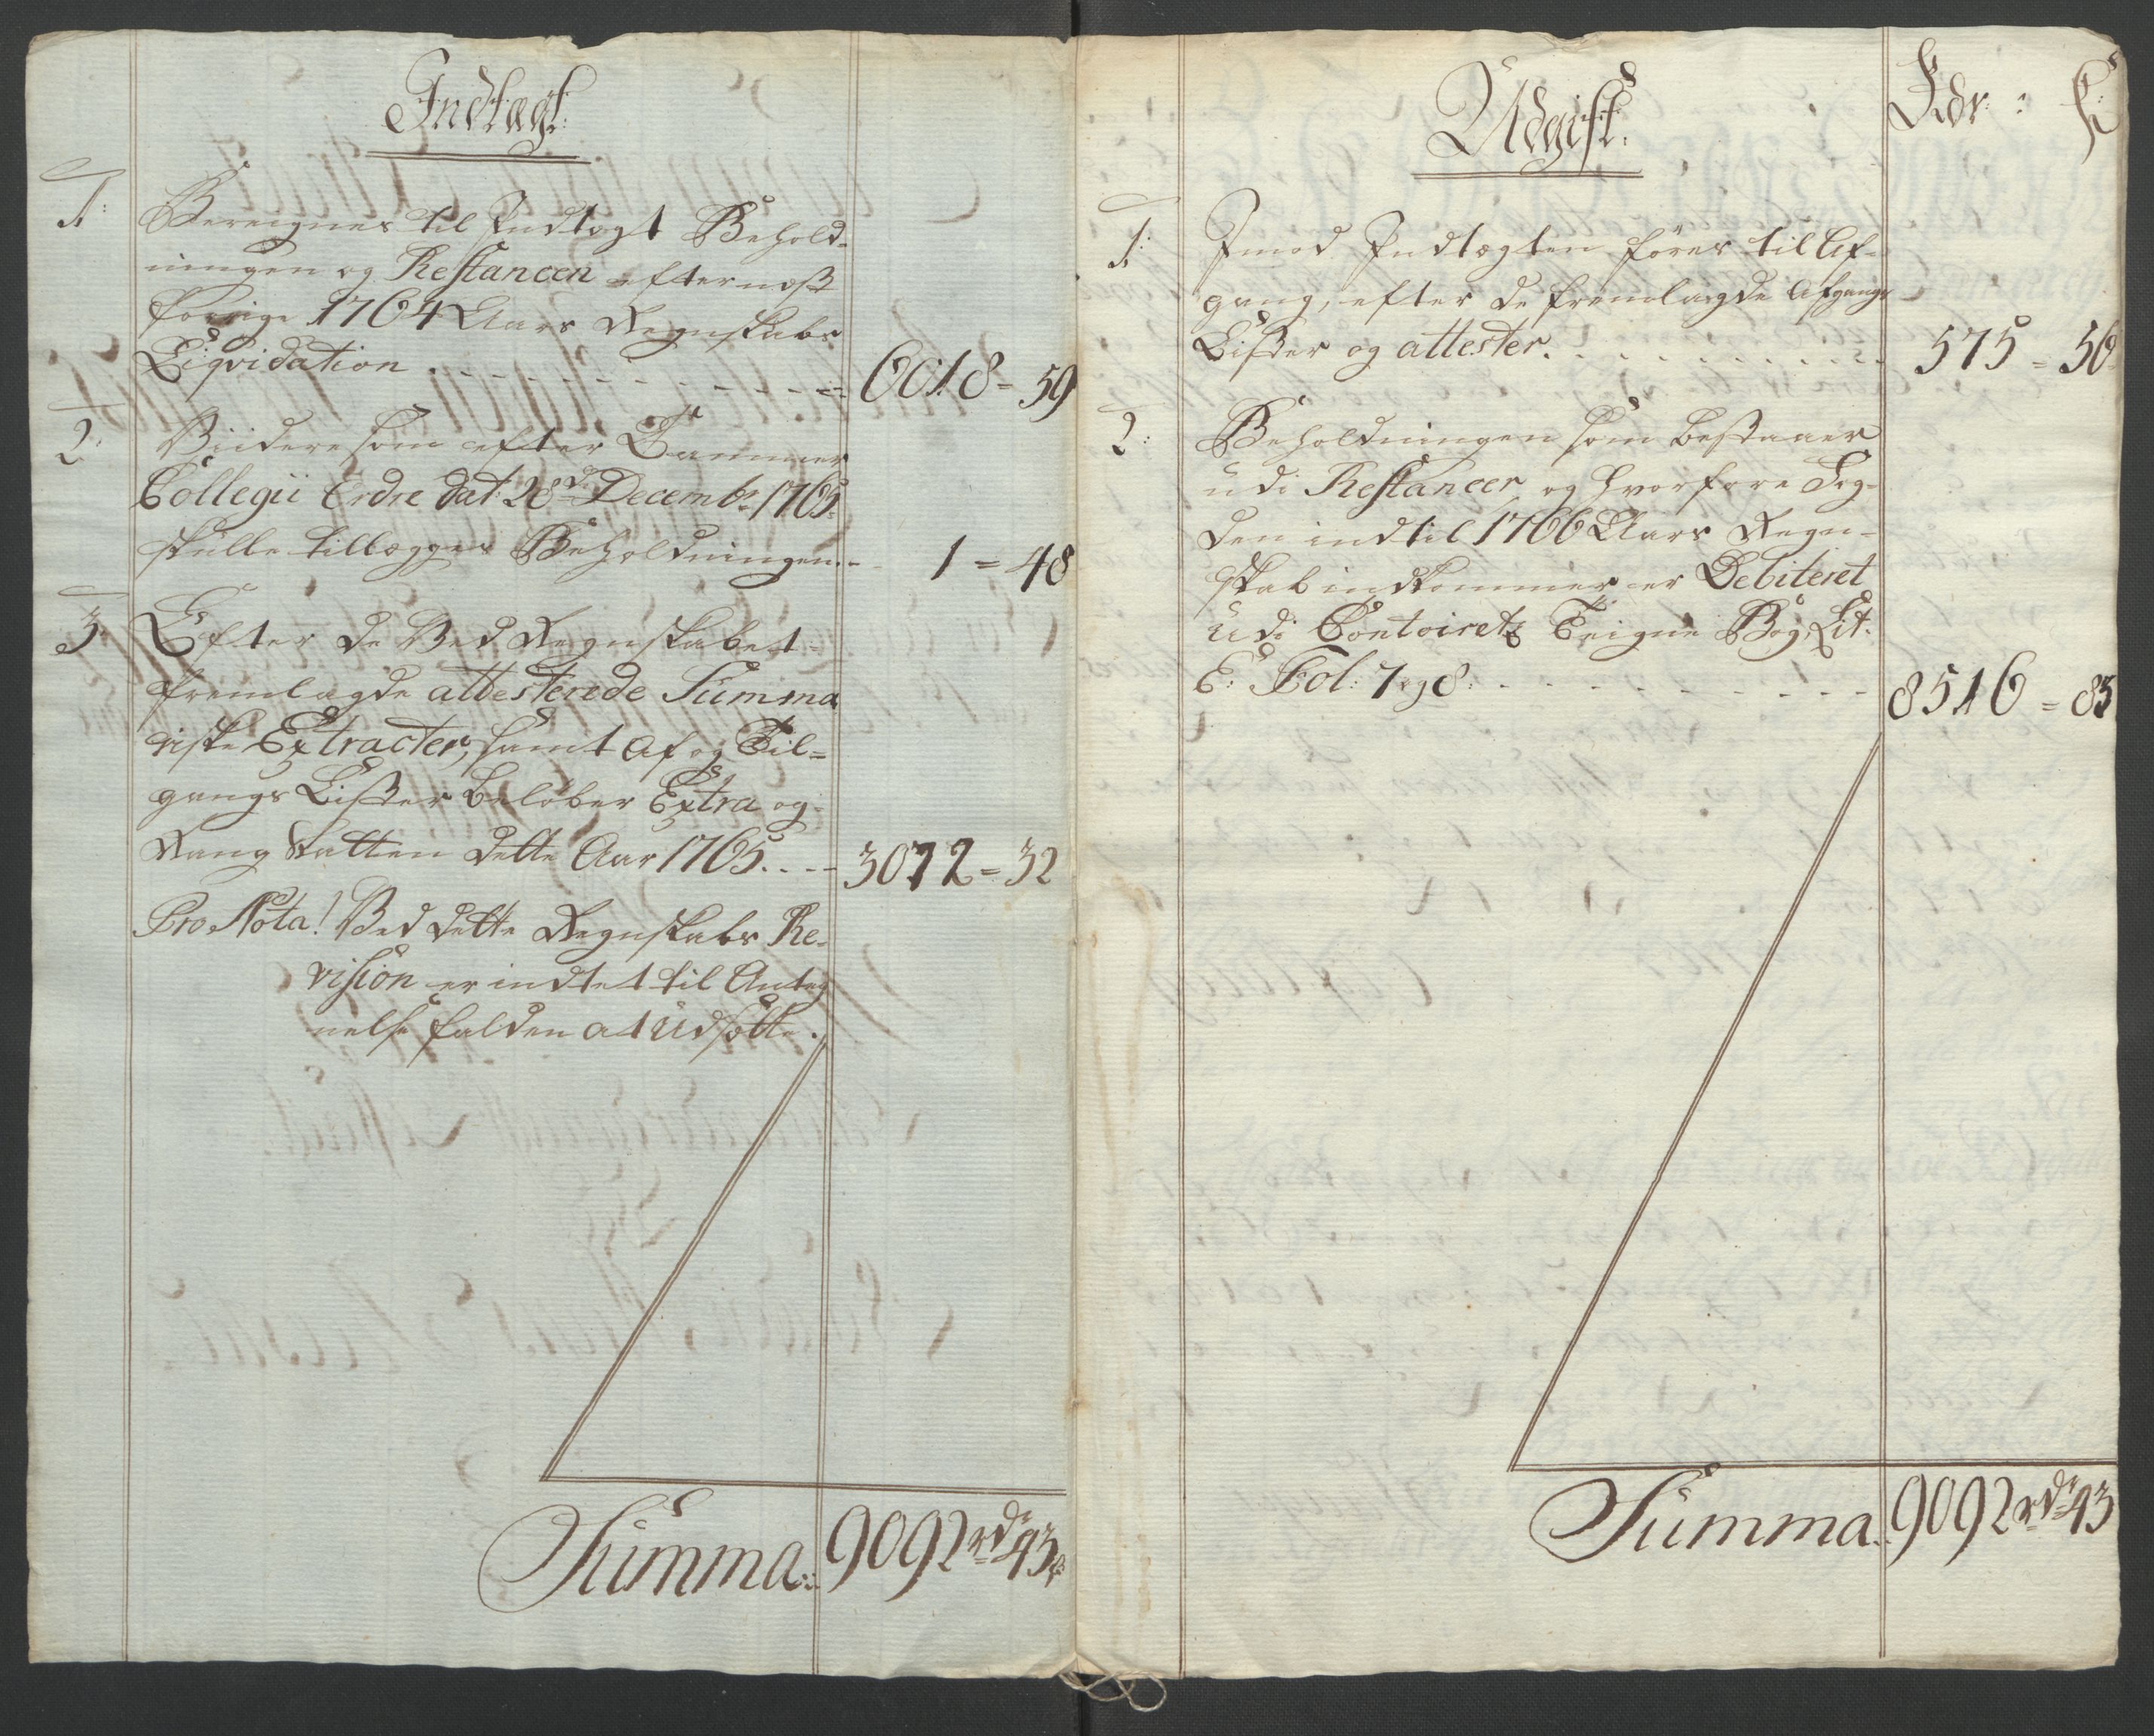 Indtægt:
1:
Bereignes til Indtægt Behold-
ningen og Restancen efter næst
forrige 1764 Aars Regnskabs
Liqvidation . - - - - - - - 6018 = 59
2:
Viidere som efter Cammer
Collegii Ordre dat: 28de Decembr 1765
skulle tillægges Beholdningen - - 1 = 48
3.
Efter de Ved Regnskabet
fremlagde attesterede Summa
riske Extracter, samt af og Til-
gangs Lister beløber Extra og
Rang Skatten dette Aar 1765 . - - - 3072 = 32
Pro Nota! Ved dette Regnskabs Re-
vision er indtet til Anteg
nelse falden at Udsætte .
Summa: 9092 rd 43 s
Udgift:
Rdr: s
1:
Imod Indtægten føres til Af-
gang, efter de fremlagde Afgangs
Lister og attester. - - - - - - - 575 = 56
2:
Beholdningen som bestaaer
udi Restancer og hvorfore Fog-
den indtil 1766 Aars Regn-
skab indkommer er Debiteret
udi Contoirets Teigne Bog Lit:
E: Fol: 7 og 8: - - - - - - - - - 8516 = 83
Summa. 9092 rd 43